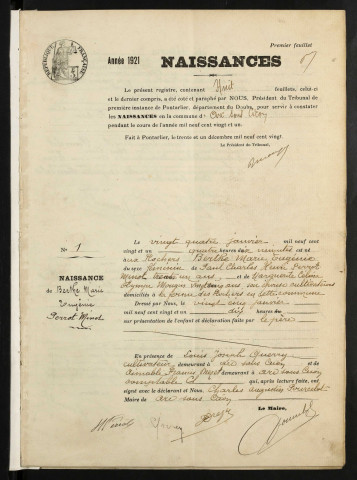 Premier feuillet
RÉPUBLIQUE FRANÇAISE
Année 1921 NAISSANCES
Le présent registre, contenant Huit feuillets, celui-ci
et le dernier compris, a été coté et paraphé par NOUS, Président du Tribunal de
première instance de Pontarlier, département du Doubs, pour servir à constater
les NAISSANCES en la commune d' Arc sous Cicon
pendant le cours de l'année mil neuf cent vingt et un.
Fait à Pontarlier, le trente et un décembre mil neuf cent vingt.
Le Président du Tribunal,
N° 1
NAISSANCE
de Berthe Marie
Eugénie
Perrot Minot
Le vingt quatre janvier mil neuf
cent vingt et un quatre heures minutes est né
aux Rochers Berthe Marie Eugénie
du sexe féminin de Paul Charles Henri Perrot
Minot trente un ans, et de Marguerite
Olympe Mougin vingt ans son épouse cultivateurs
domiciliés à la ferme des Rochers en cette commune
Dressé par Nous, le vingt cinq janvier
mil neuf cent vingt et un dix heures du
sur présentation de l'enfant et déclaration faite par le père
En présence de Louis Joseph
cultivateur demeurant à arc sous Cicon et
demeurant à arc sous Cicon
qui, après lecture faite, ont
signé avec le déclarant et Nous, Charles Auguste
Maire de arc sous Cicon
Le Maire,